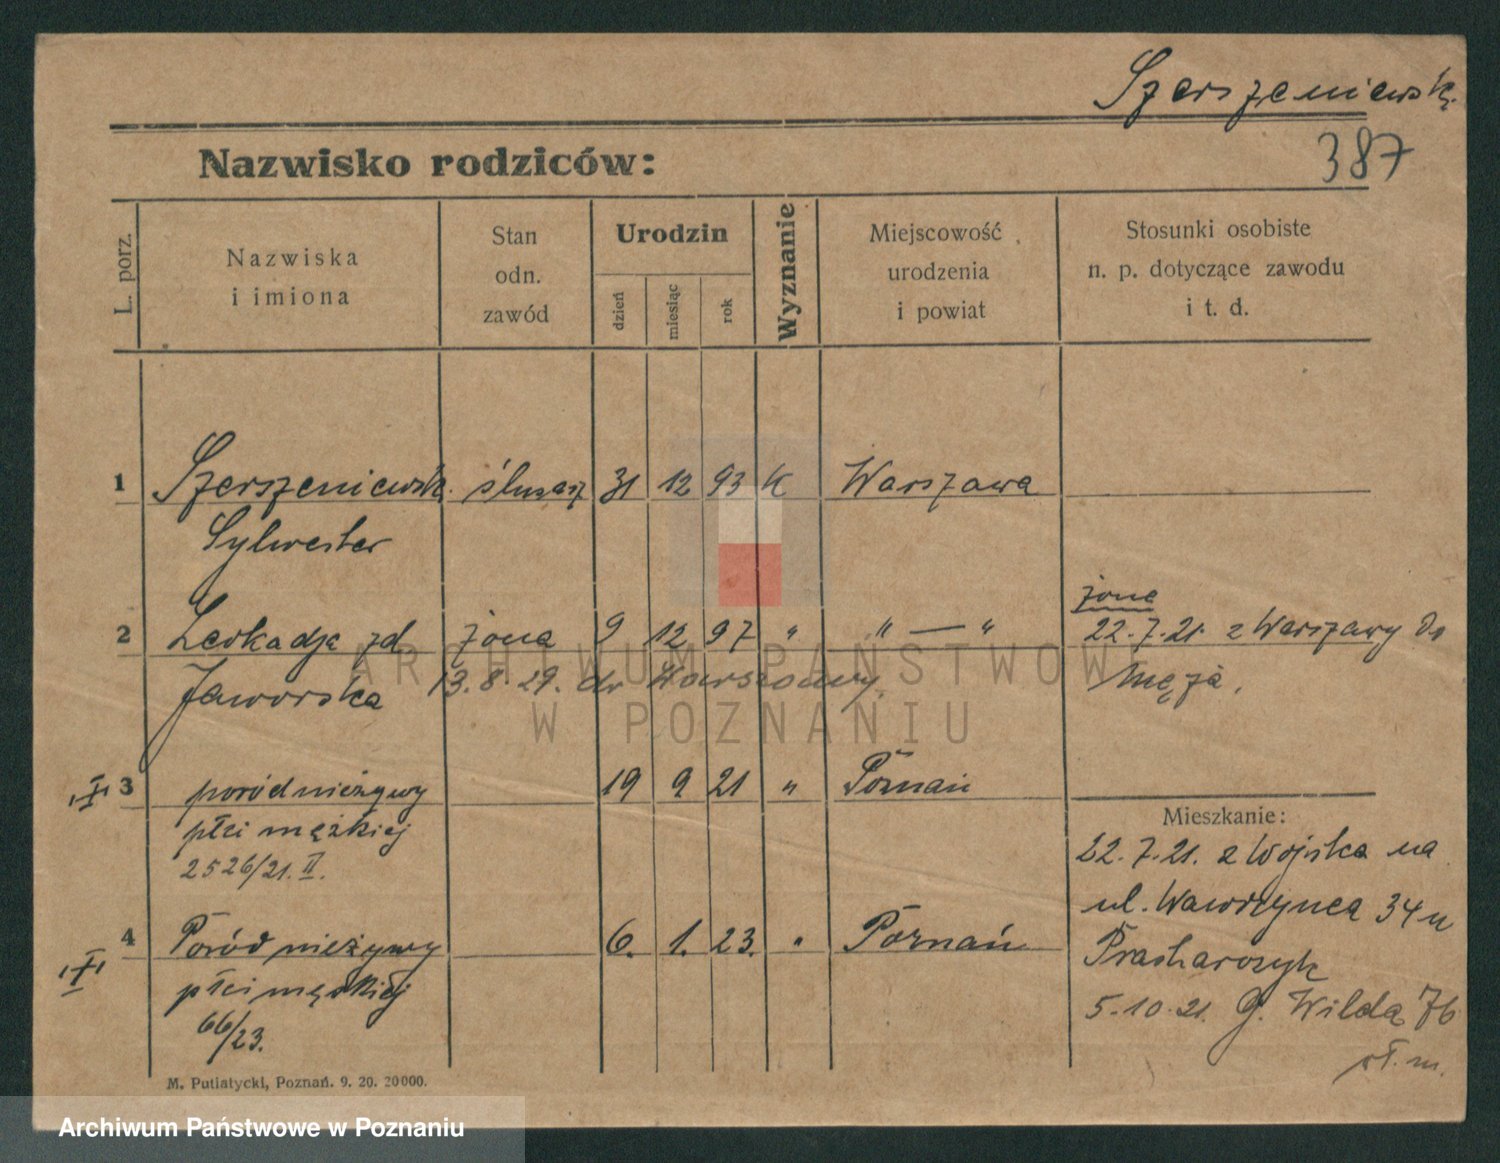 Szerszeniewski
387
Nazwisko rodziców:
L. porz.
Nazwiska
i imiona
Stan
odn.
zawód
Urodzin
dzień
miesiąc
rok
Wyznanie
Miejscowość
urodzenia
i powiat
Stosunki osobiste
n. p. dotyczące zawodu
i t. d.
1 Szerszeniewski ślusarz 31 12 93 K Warszawa
Sylwester
2 Leokadja zd żona 9 12 97 " " — "
Jaworska 13.8.29. do Warszawy
żone
22.7.21. z Warszawy do
męża.
3 poród nieżywy 19 9 21 " Poznań
płci męzkiej
2526/21. II.
4 Poród nieżywy 6. 1. 23. " Poznań
płci męskiej
66/23.
Mieszkanie:
22.7.21. z Wojska na
ul. Wawrzynca 34 u
5.10.21. G. Wilda 76
M. Putiatycki, Poznań. 9. 20. 20000.
ARCHIWUM PAŃSTWOWE
W POZNANIU
Archiwum Państwowe w Poznaniu